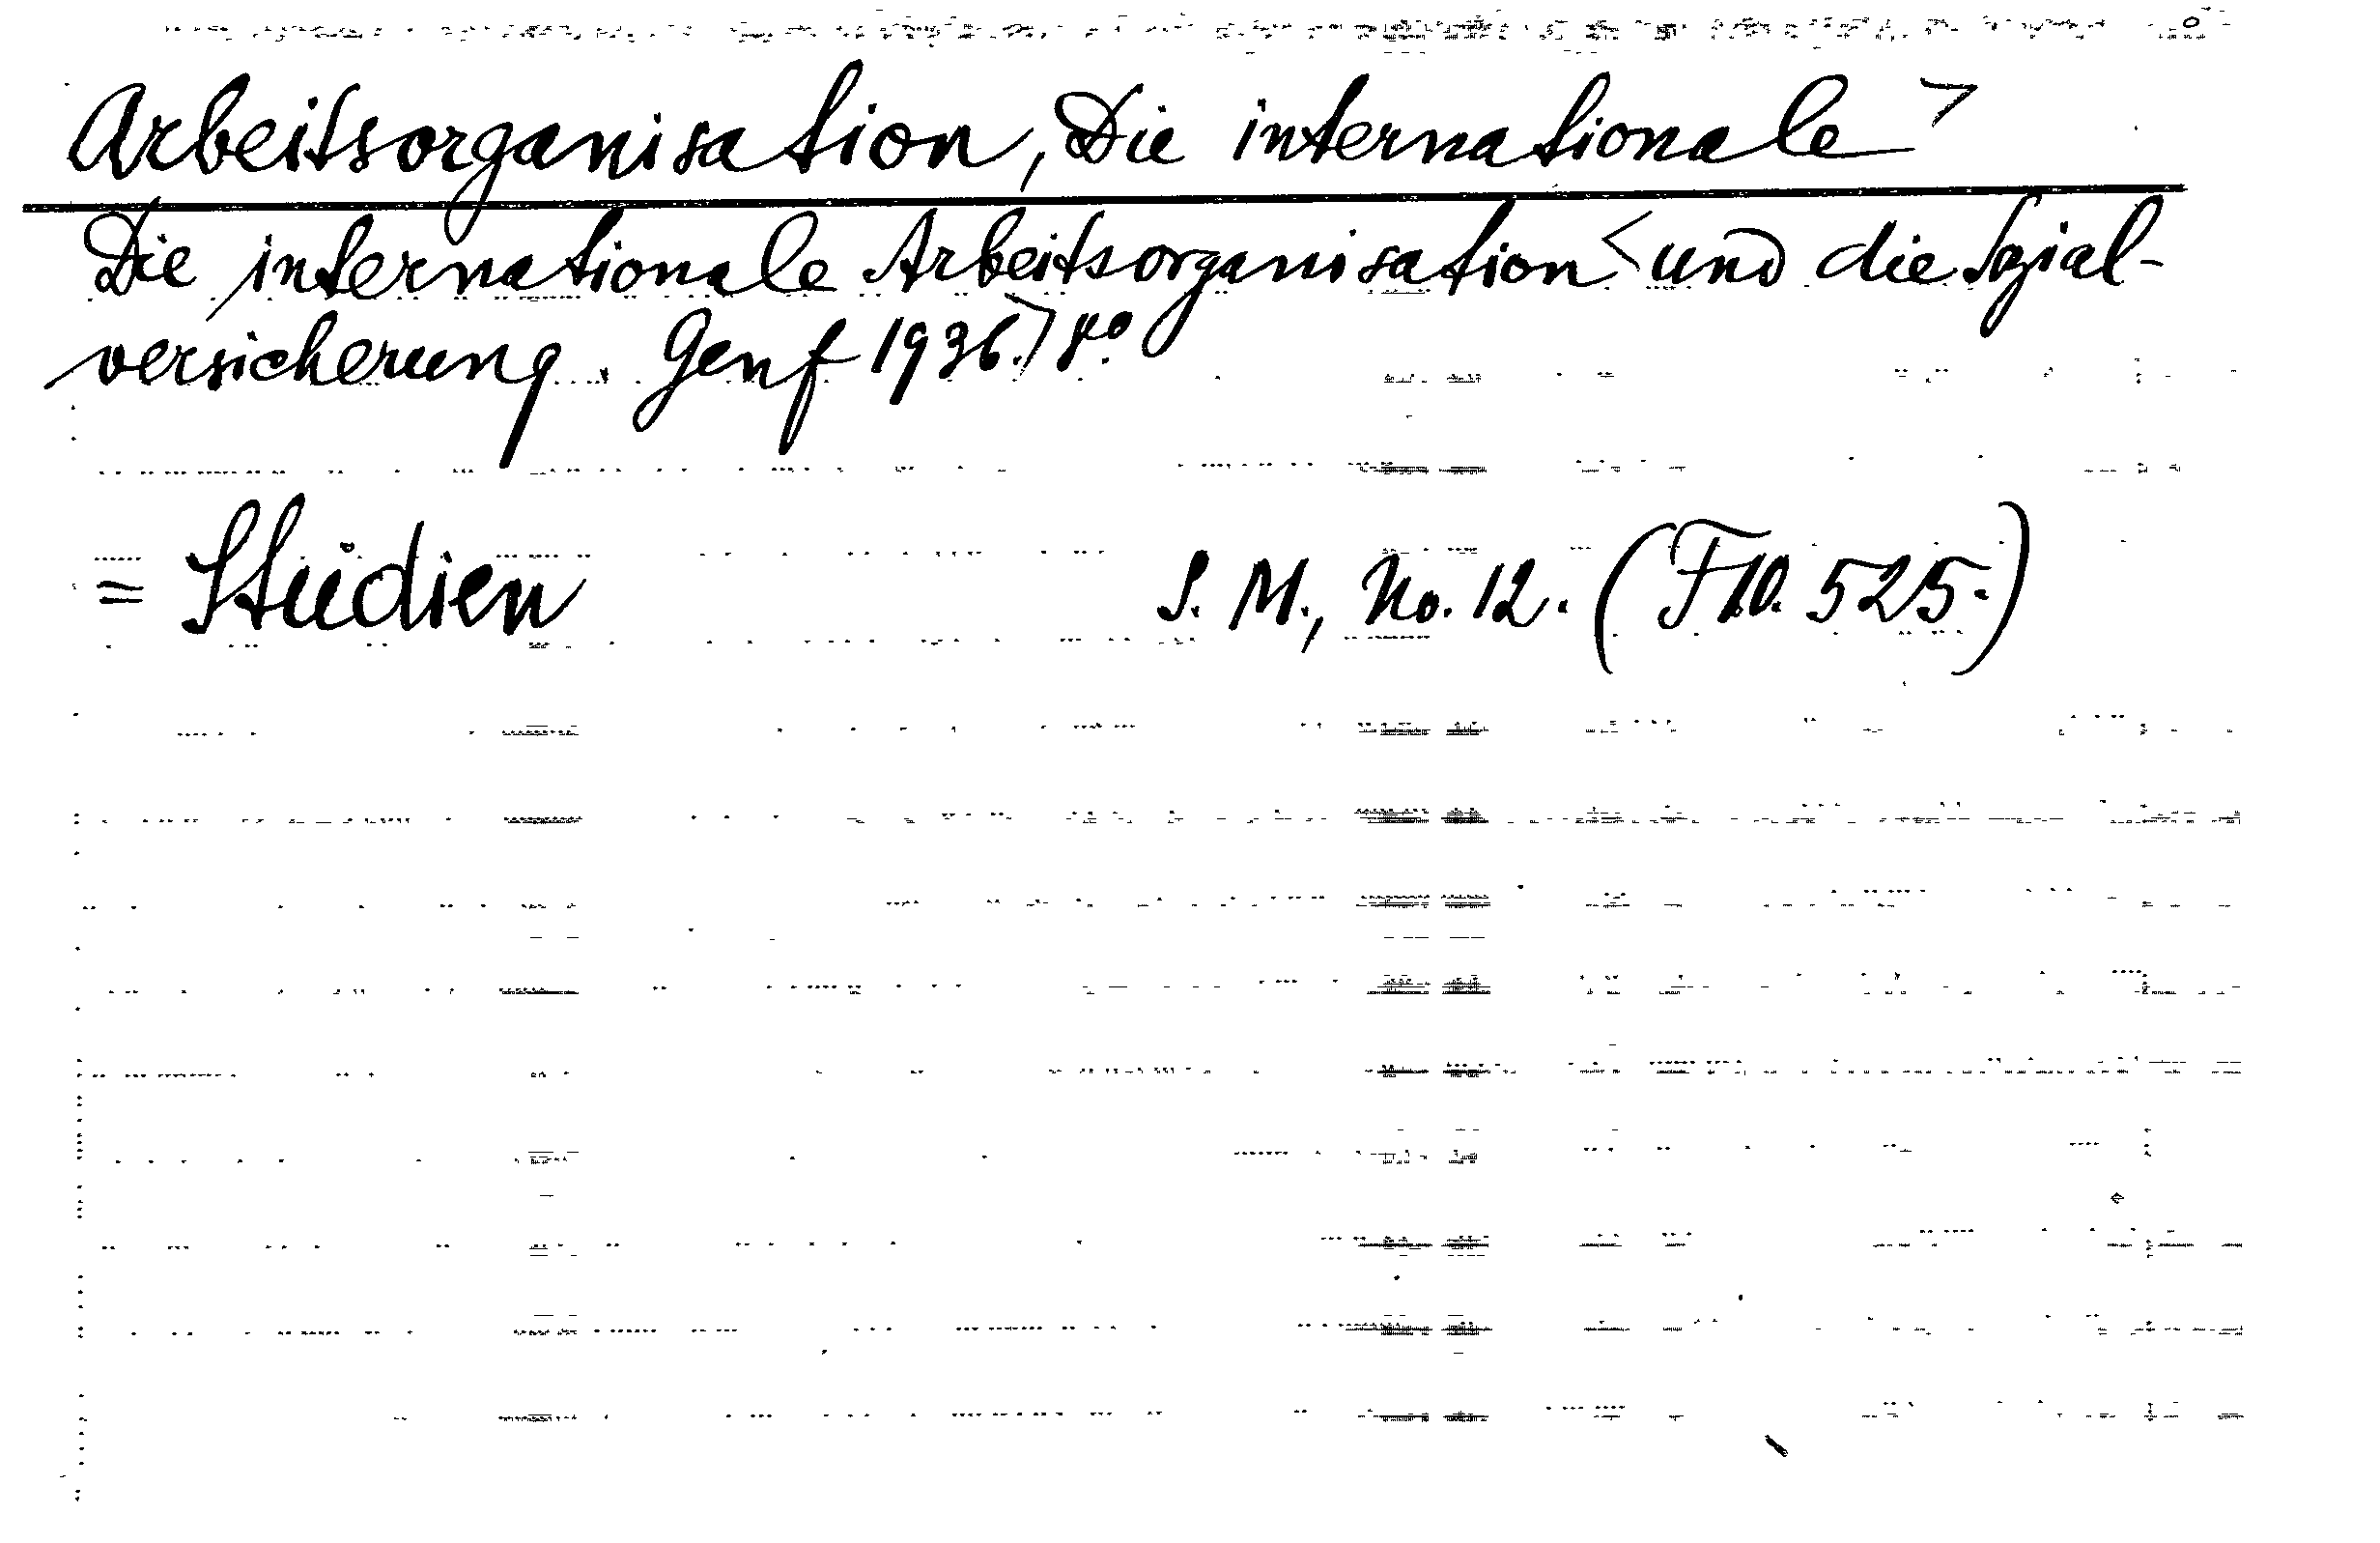 Arbeitsorganisation, Die internationale >
Die internationale Arbeitsorganisation < und die Sozial-
versicherung. Genf 1936. > 8o.
= Studien S. M., No. 12. (F 10. 525.)